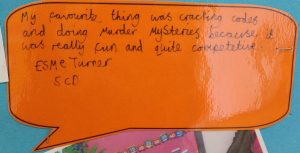 My favourite thing was cracking codes
and doing Murder Mysteries because it
was really fun and quite competetive.
ESME Turner
5CD